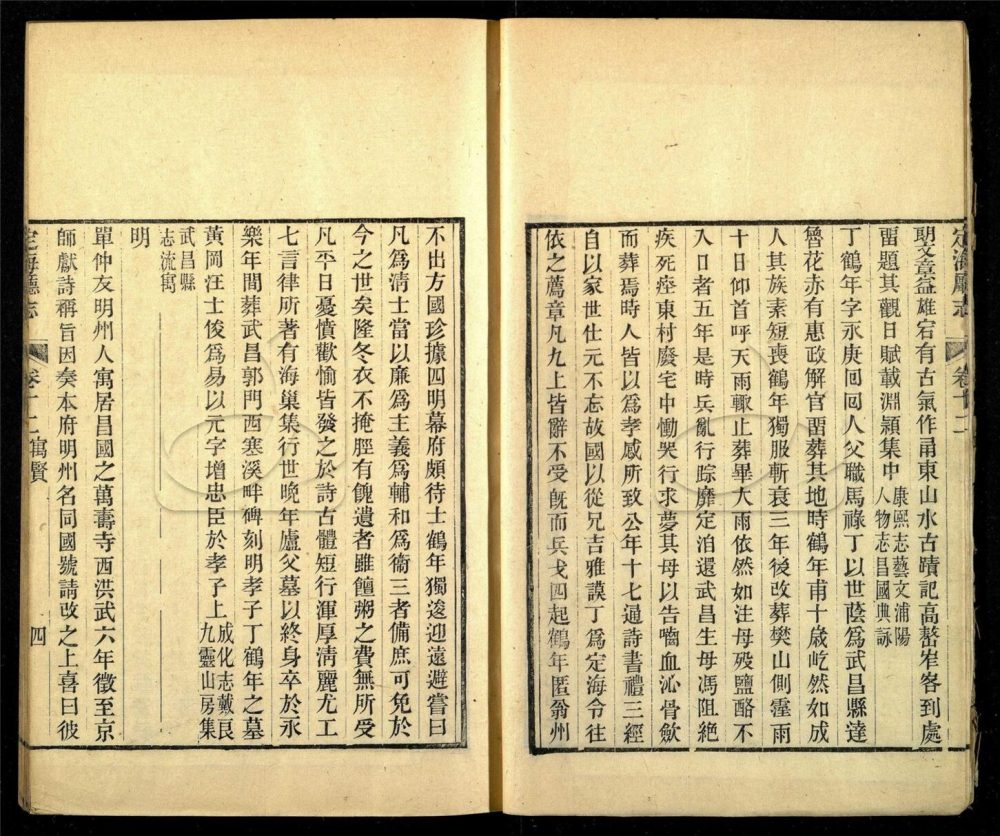 定海廳志 卷十二
文章益雄宕有古氣作甬東山水古蹟記高嶅峚客到處
畱題其觀日賦載淵潁集中 康熙志藝文浦陽人物志昌國典詠
丁鶴年字永庚回回人父職馬祿丁以世蔭爲武昌縣達
魯花赤有惠政解官畱葬其地時鶴年甫十歲屹然如成
人其族素短喪鶴年獨服斬衰三年後改葬樊山側霪雨
十日仰首呼天雨輒止葬畢大雨依然如注母歿鹽酪不
入口者五年是時兵亂行踪靡定洎還武昌生母馮阻絶
疾死瘞東村廢宅中慟哭行求夢其母以告嚙血沁骨斂
而葬焉時人皆以爲孝感所致公年十七通詩書禮三經
自以家世仕元不忘故國以從兄吉雅謨丁爲定海令往
依之薦章凡九上皆辭不受旣而兵戈四起鶴年匿翁州
不出方國珍據四明幕府頗待士鶴年獨逡迎遠避嘗曰
凡爲清士當以廉爲主義爲輔和爲衞三者備庶可免於
今之世矣隆冬衣不掩脛有餽遺者雖饘粥之費無所受
凡平日憂憤歡愉皆發之於詩古體短行渾厚淸麗尤工
七言律所著有海巢集行世晩年廬父墓以終身卒於永
樂年間葬武昌郭門西塞溪畔碑刻明孝子丁鶴年之墓
黃岡汪士俊爲易以元字增忠臣於孝子上 成化志戴良九靈山房集
武昌縣志流寓
明
單仲友明州人寓居昌國之萬壽寺西洪武六年徵至京
師獻詩稱旨因奏本府明州名同國號請改之上喜曰彼
定海廳志 卷十二 寓賢 四